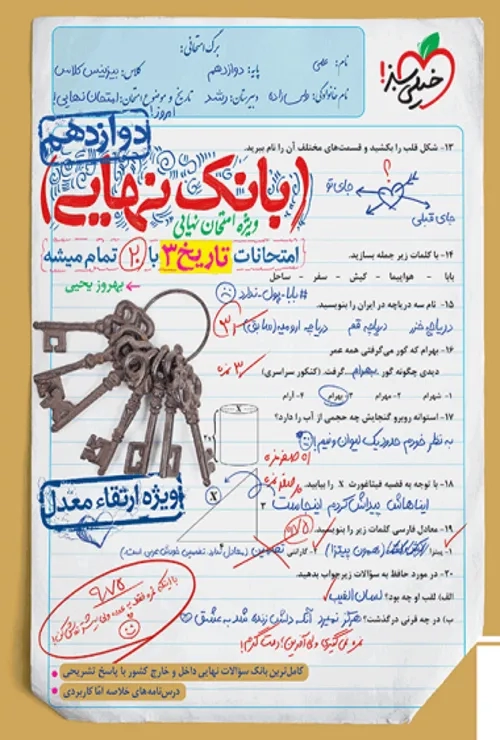 برگ امتحانی:
نام: علمی
پایه: دوازدهم
کلاس: بیزینس کلاس
نام خانوادگی:
دبیرستان: رشد
تاریخ و موضوع امتحان: امتحان نهایی!
امروز!
خیلی سبز!
دوازدهم
(بانک نهایی)
ویژه امتحان نهایی
امتحانات تاریخ ۳ با ۲۰ تمام میشه
بهروز یحیی
۱۳- شکل قلب را بکشید و قسمت‌های مختلف آن را نام ببرید.
؟
جای تو
جای قبلی
۱۴- با کلمات زیر جمله بسازید.
بابا - هواپیما - کیش - سفر - ساحل
# بابا - پول - ندارد
۱۵- نام سه دریاچه در ایران را بنویسید.
دریاچه خزر دریاچه قم دریاچه ارومیه (سابق)
۱۶- بهرام که گور می‌گرفتی همه عمر
دیدی چگونه گور بهرام گرفت. (کنکور سراسری)
۳ نمره
۱- شهرام ۲- مهرام ۳- بهرام ۴- آرام
۱۷- استوانه روبرو گنجایش چه حجمی از آب را دارد؟
به نظر خودم حدود یک لیوان و نیم!
X
۲x
۱۸- با توجه به قضیه فیثاغورث X را بیابید.
ایناهاش پیداش کردم اینجاست
X
۳
۴
۱۹- معادل فارسی کلمات زیر را بنویسید.
۱- پیتزا (همون پیتزا) ۲- گارانتی تضمین
۲۰- در مورد حافظ به سؤالات زیر جواب بدهید.
الف) لقب او چه بود؟ لسان الغیب
ب) در چه قرنی درگذشت؟ هرگز نمیرد آنکه دلش زنده شد به عشق
ویژه ارتقاء معدل
۹/۷۵
کامل‌ترین بانک سؤالات نهایی داخل و خارج کشور با پاسخ تشریحی
درس‌نامه‌های خلاصه امّا کاربردی